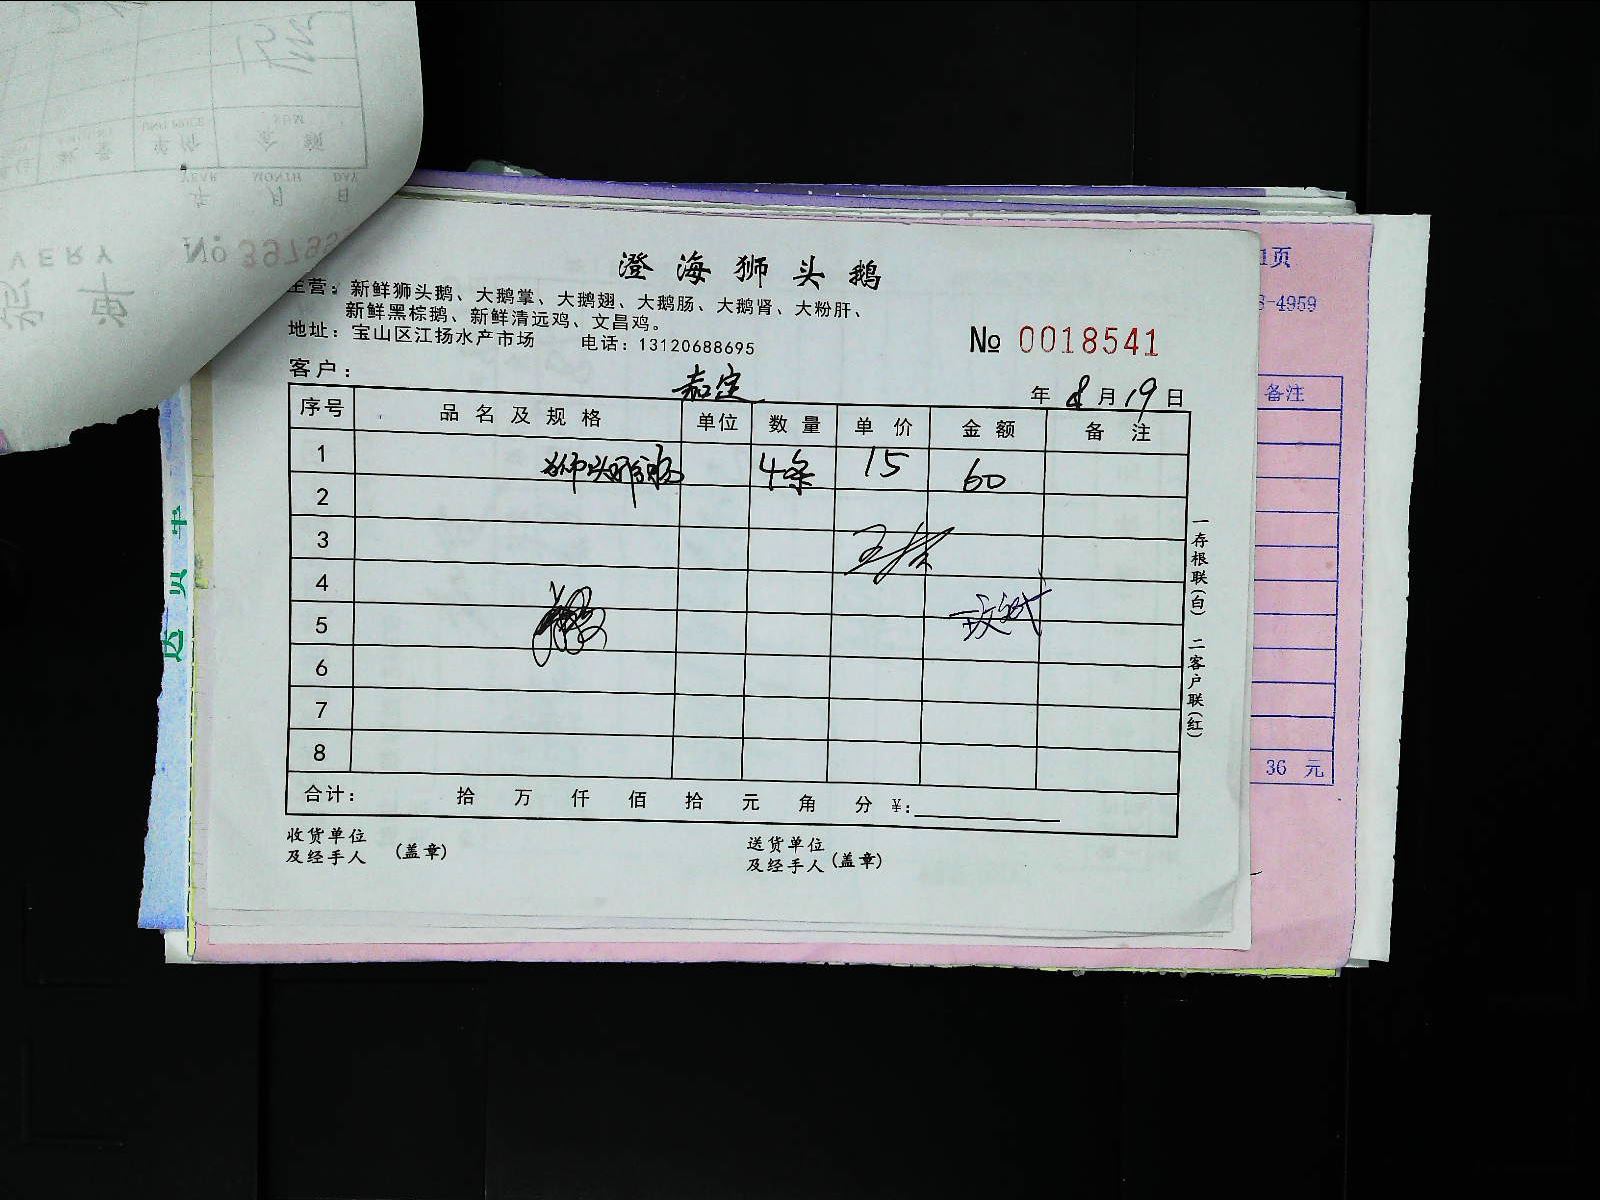 澄海狮头鹅
主营：新鲜狮头鹅、大鹅掌、大鹅翅、大鹅肠、大鹅肾、大粉肝、
新鲜黑棕鹅、新鲜清远鸡、文昌鸡。
地址：宝山区江扬水产市场 电话：13120688695
№ 0018541
客户： 嘉定 年 8 月 19 日
序号 品名及规格 单位 数量 单价 金额 备注
1 狮头鹅肠 4条 15 60
2
3
4
5
6
7
8
合计： 拾 万 仟 佰 拾 元 角 分 ¥：
收货单位
及经手人 (盖章)
送货单位
及经手人 (盖章)
一存根联(白) 二客户联(红)
1页
-4959
备注
36 元
YEAR MONTH DAY
年 月 日
№ 3979
VERY
单价 金额
UNIT PRICE SUM